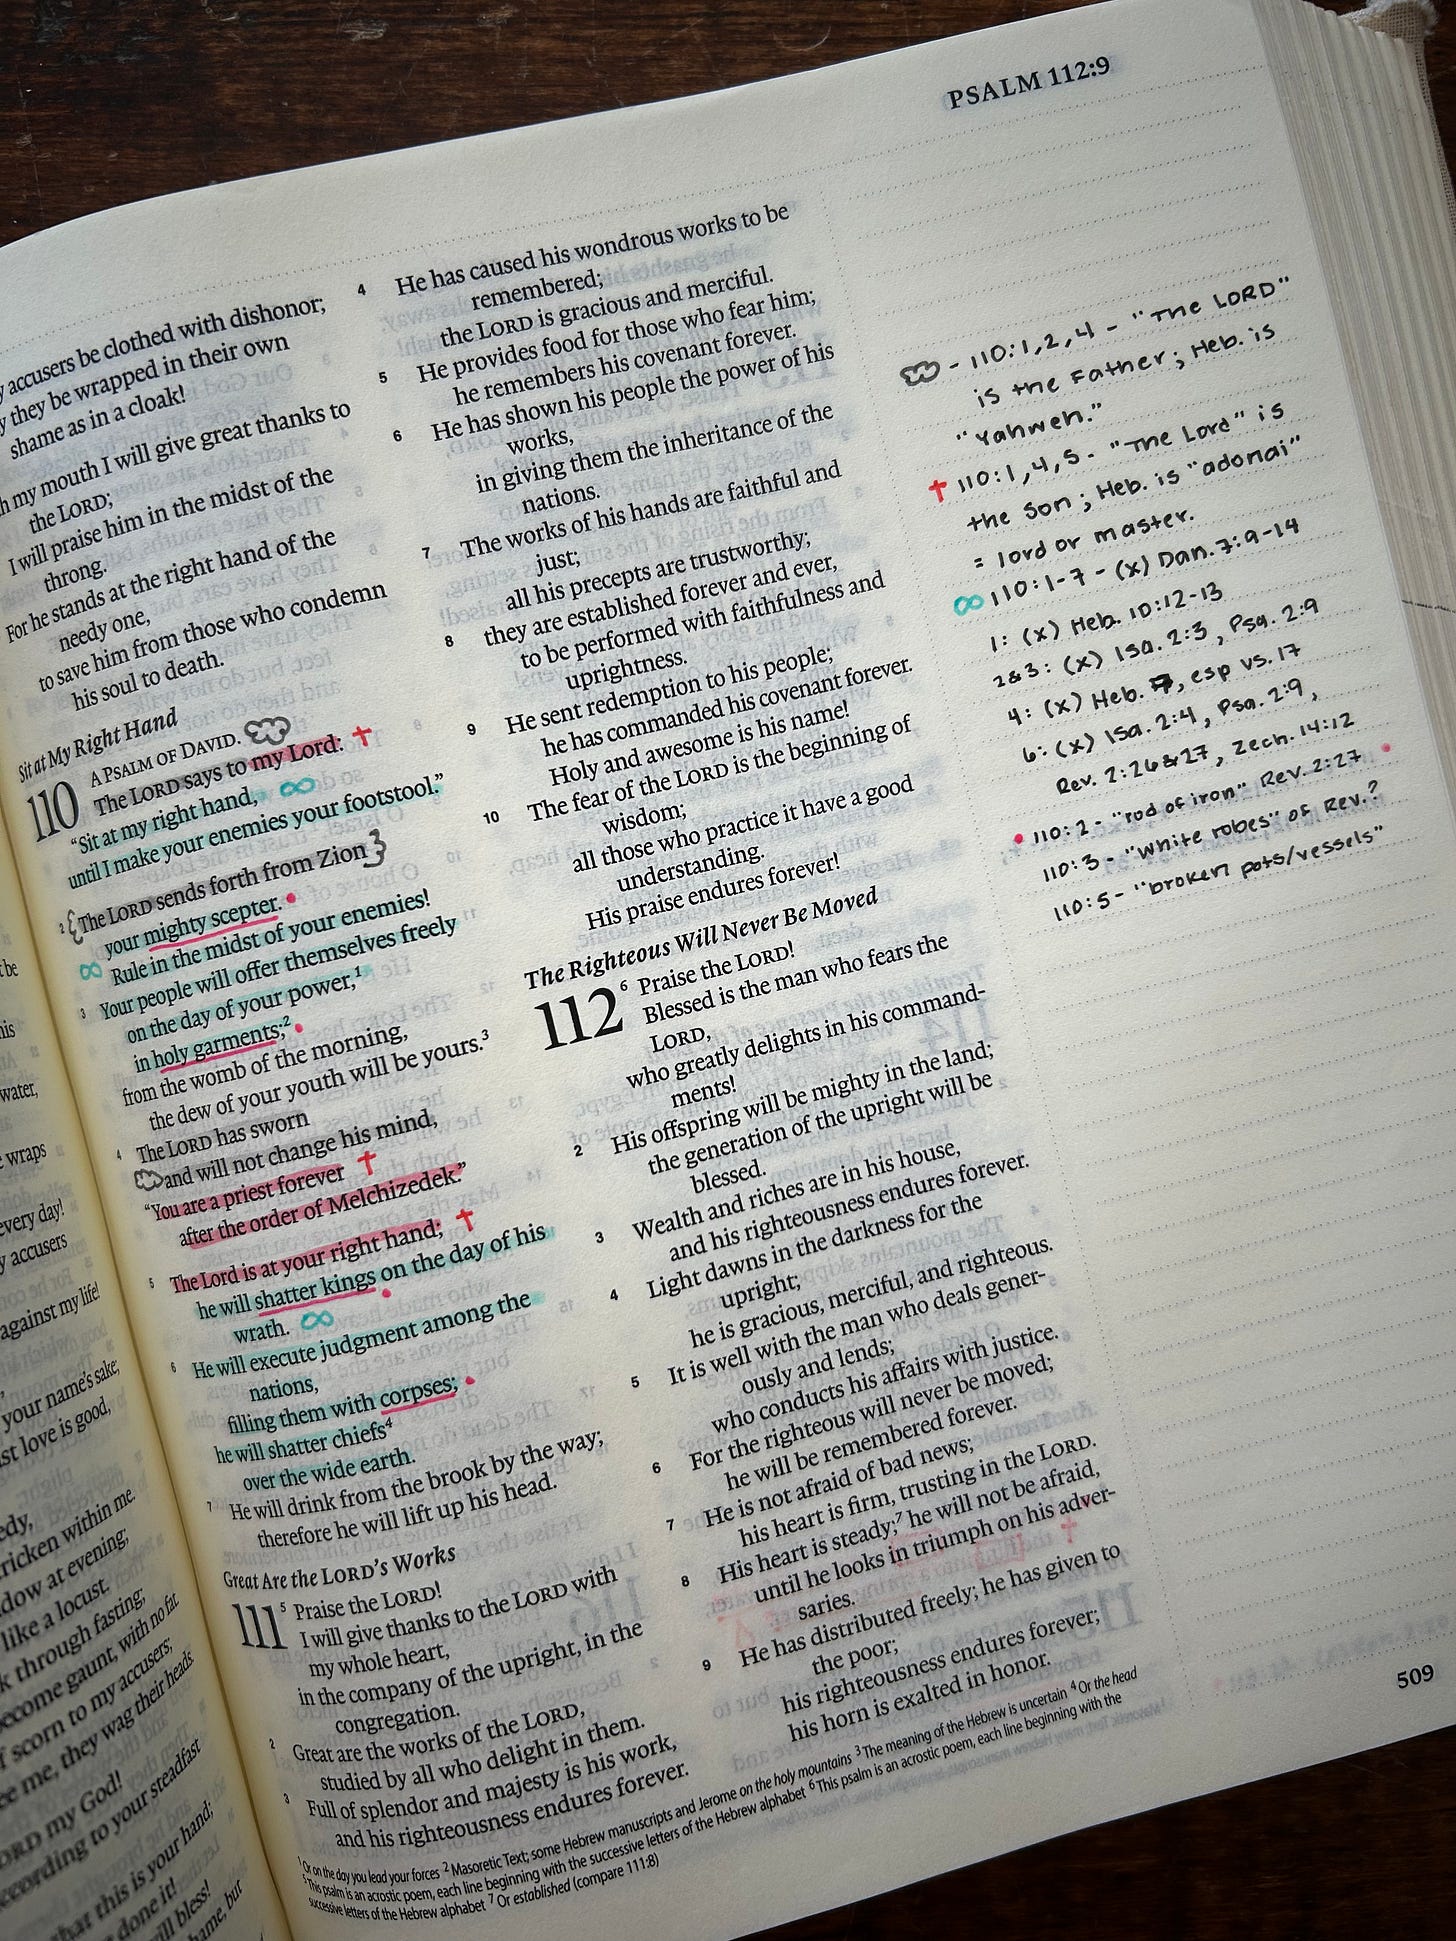 PSALM 112:9
accusers be clothed with dishonor;
they be wrapped in their own
shame as in a cloak!
my mouth I will give great thanks to
the LORD;
I will praise him in the midst of the
throng.
For he stands at the right hand of the
needy one,
to save him from those who condemn
his soul to death.
Sit at My Right Hand
A PSALM OF DAVID.
110 The LORD says to my Lord:
“Sit at my right hand,
until I make your enemies your footstool.”
2 The LORD sends forth from Zion
your mighty scepter.
Rule in the midst of your enemies!
3 Your people will offer themselves freely
on the day of your power,1
in holy garments;2
from the womb of the morning,
the dew of your youth will be yours.3
4 The LORD has sworn
and will not change his mind,
“You are a priest forever
after the order of Melchizedek.”
5 The Lord is at your right hand;
he will shatter kings on the day of his
wrath.
6 He will execute judgment among the
nations,
filling them with corpses;
he will shatter chiefs4
over the wide earth.
7 He will drink from the brook by the way;
therefore he will lift up his head.
Great Are the LORD's Works
111 5 Praise the LORD!
I will give thanks to the LORD with
my whole heart,
in the company of the upright, in the
congregation.
2 Great are the works of the LORD,
studied by all who delight in them.
3 Full of splendor and majesty is his work,
and his righteousness endures forever.
4 He has caused his wondrous works to be
remembered;
the LORD is gracious and merciful.
5 He provides food for those who fear him;
he remembers his covenant forever.
6 He has shown his people the power of his
works,
in giving them the inheritance of the
nations.
7 The works of his hands are faithful and
just;
all his precepts are trustworthy;
8 they are established forever and ever,
to be performed with faithfulness and
uprightness.
9 He sent redemption to his people;
he has commanded his covenant forever.
Holy and awesome is his name!
10 The fear of the LORD is the beginning of
wisdom;
all those who practice it have a good
understanding.
His praise endures forever!
The Righteous Will Never Be Moved
112 6 Praise the LORD!
Blessed is the man who fears the
LORD,
who greatly delights in his command-
ments!
2 His offspring will be mighty in the land;
the generation of the upright will be
blessed.
3 Wealth and riches are in his house,
and his righteousness endures forever.
4 Light dawns in the darkness for the
upright;
he is gracious, merciful, and righteous.
5 It is well with the man who deals gener-
ously and lends;
who conducts his affairs with justice.
6 For the righteous will never be moved;
he will be remembered forever.
7 He is not afraid of bad news;
his heart is firm, trusting in the LORD.
8 His heart is steady;7 he will not be afraid,
until he looks in triumph on his adver-
saries.
9 He has distributed freely; he has given to
the poor;
his righteousness endures forever;
his horn is exalted in honor.
1 Or on the day you lead your forces 2 Masoretic Text; some Hebrew manuscripts and Jerome on the holy mountains 3 The meaning of the Hebrew is uncertain 4 Or the head
5 This psalm is an acrostic poem, each line beginning with the successive letters of the Hebrew alphabet 6 This psalm is an acrostic poem, each line beginning with the
successive letters of the Hebrew alphabet 7 Or established (compare 111:8)
- 110:1,2,4 - "The LORD"
is the Father; Heb. is
"Yahweh."
✝ 110:1,4,5 - "The Lord" is
the Son; Heb. is "adonai"
= lord or master.
∞ 110:1-7 - (x) Dan. 7:9-14
1: (x) Heb. 10:12-13
2&3: (x) Isa. 2:3, Psa. 2:9
4: (x) Heb. 7, esp vs. 17
6: (x) Isa. 2:4, Psa. 2:9,
Rev. 2:26&27, Zech. 14:12
• 110:2 - "rod of iron" Rev. 2:27 •
110:3 - "white robes" of Rev.?
110:5 - "broken pots/vessels"
509
water,
wraps
every day!
accusers
against my life!
your name's sake;
love is good,
stricken within me.
at evening;
like a locust.
through fasting,
become gaunt, with no fat.
scorn to my accusers;
me, they wag their heads.
my God!
according to your steadfast
that this is your hand;
done it!
will bless!
but